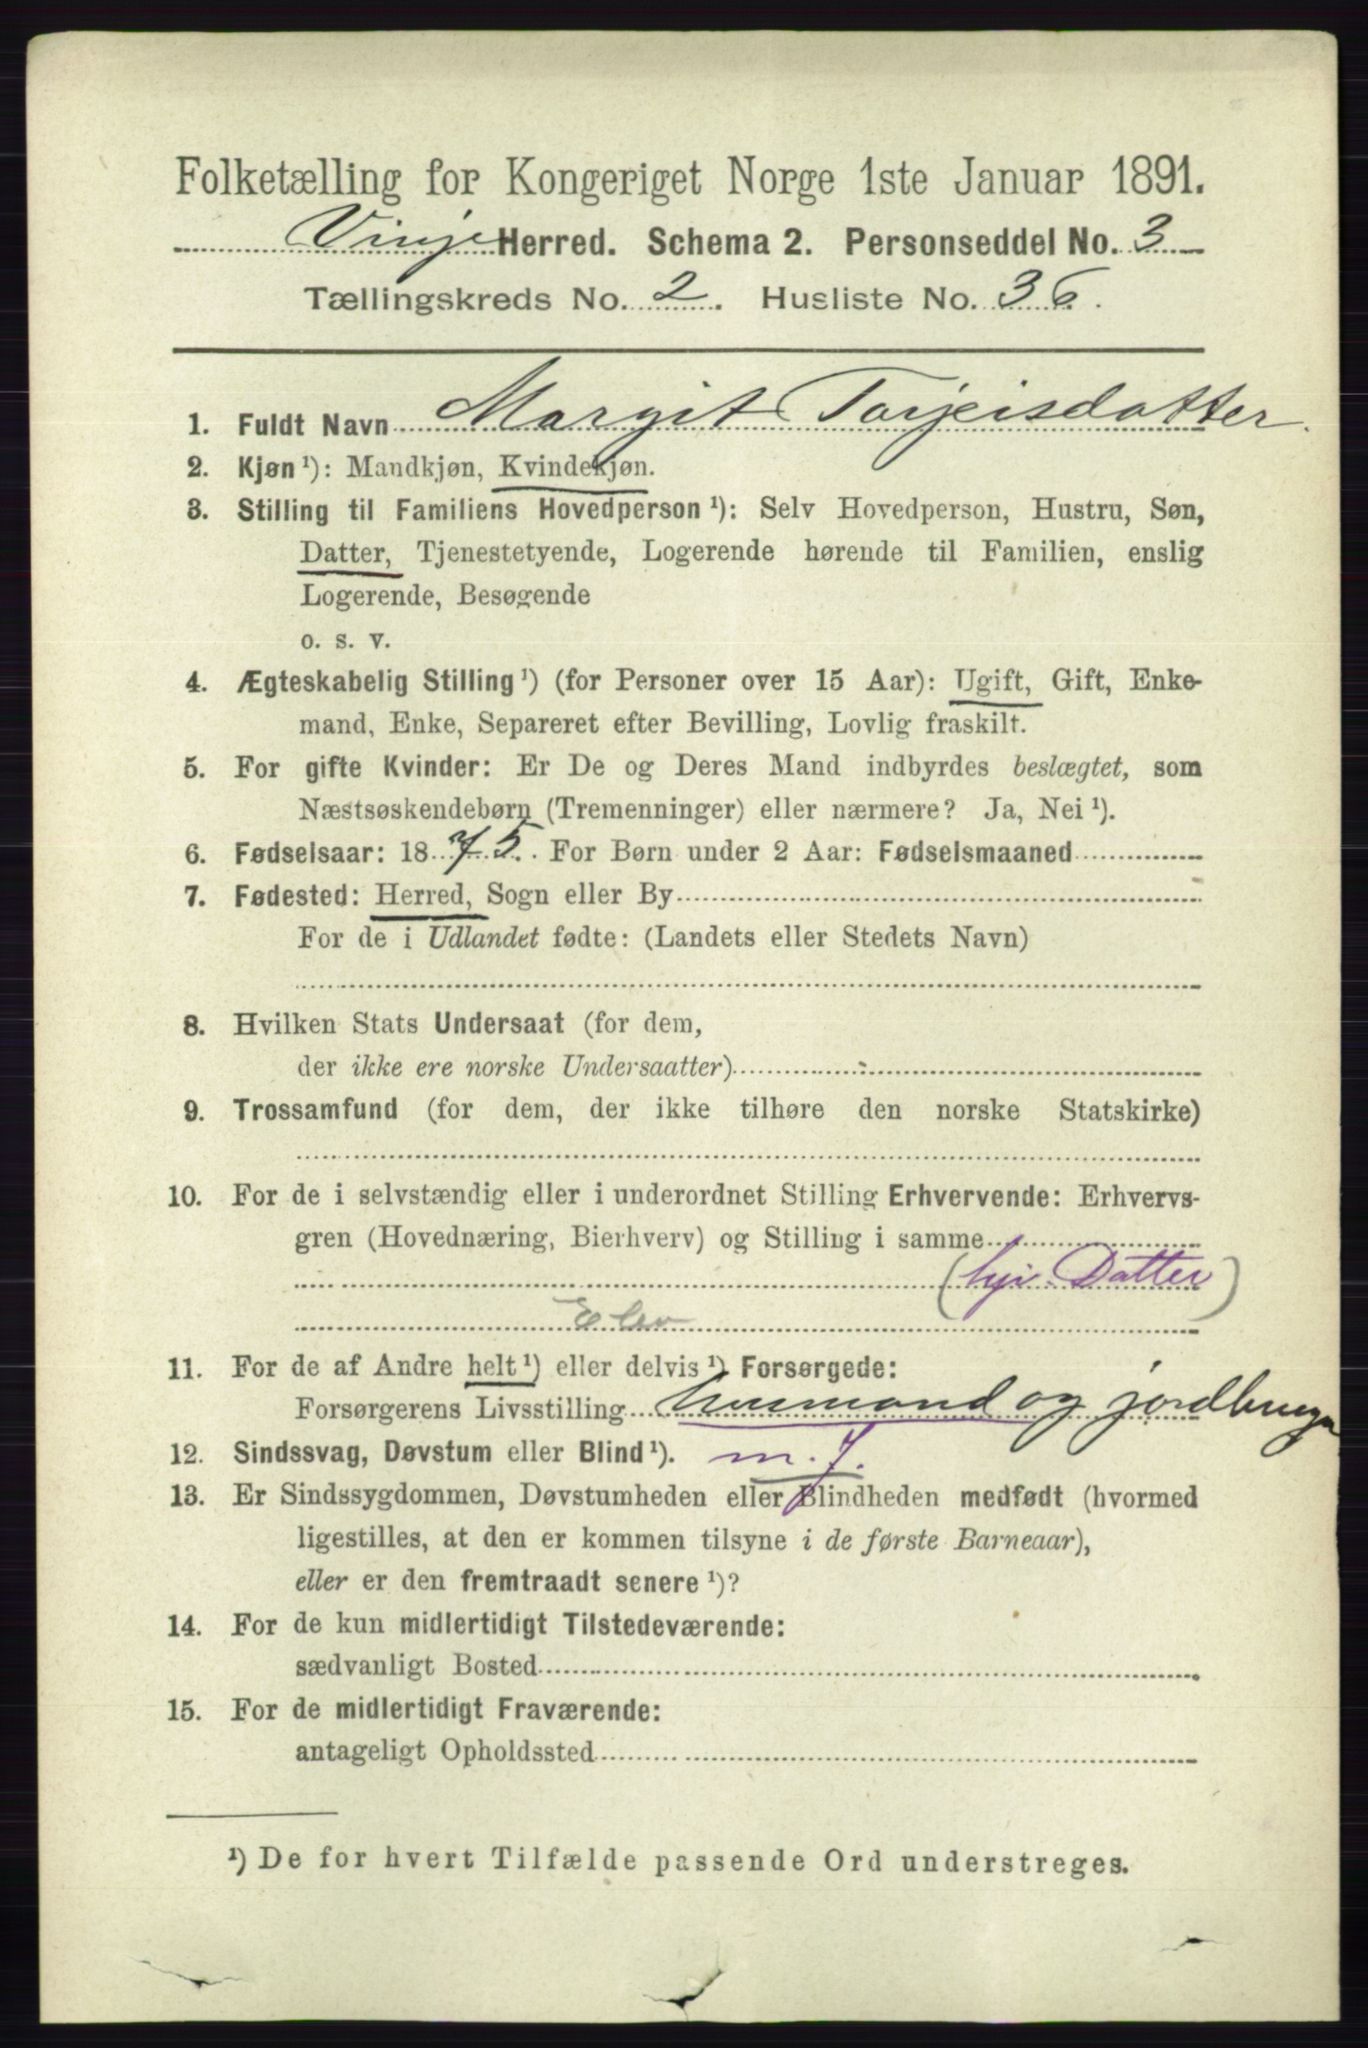 Folketælling for Kongeriget Norge 1ste Januar 1891.
Vinje Herred. Schema 2. Personseddel No. 3
Tællingskreds No. 2. Husliste No. 36.
1. Fuldt Navn Margit Torjeisdatter.
2. Kjøn ¹): Mandkjøn, Kvindekjøn.
3. Stilling til Familiens Hovedperson ¹): Selv Hovedperson, Hustru, Søn,
Datter, Tjenestetyende, Logerende hørende til Familien, enslig
Logerende, Besøgende
o. s. v.
4. Ægteskabelig Stilling ¹) (for Personer over 15 Aar): Ugift, Gift, Enke-
mand, Enke, Separeret efter Bevilling, Lovlig fraskilt.
5. For gifte Kvinder: Er De og Deres Mand indbyrdes beslægtet, som
Næstsøskendebørn (Tremenninger) eller nærmere? Ja, Nei ¹).
6. Fødselsaar: 1875. For Børn under 2 Aar: Fødselsmaaned
7. Fødested: Herred, Sogn eller By
For de i Udlandet fødte: (Landets eller Stedets Navn)
8. Hvilken Stats Undersaat (for dem,
der ikke ere norske Undersaatter)
9. Trossamfund (for dem, der ikke tilhøre den norske Statskirke)
10. For de i selvstændig eller i underordnet Stilling Erhvervende: Erhvervs-
gren (Hovednæring, Bierhverv) og Stilling i samme
Datter)
Elev
11. For de af Andre helt ¹) eller delvis ¹) Forsørgede:
Forsørgerens Livsstilling husmand og jordbruger
12. Sindssvag, Døvstum eller Blind ¹). m. 7.
13. Er Sindssygdommen, Døvstumheden eller Blindheden medfødt (hvormed
ligestilles, at den er kommen tilsyne i de første Barneaar),
eller er den fremtraadt senere ¹)?
14. For de kun midlertidigt Tilstedeværende:
sædvanligt Bosted
15. For de midlertidigt Fraværende:
antageligt Opholdssted
¹) De for hvert Tilfælde passende Ord understreges.